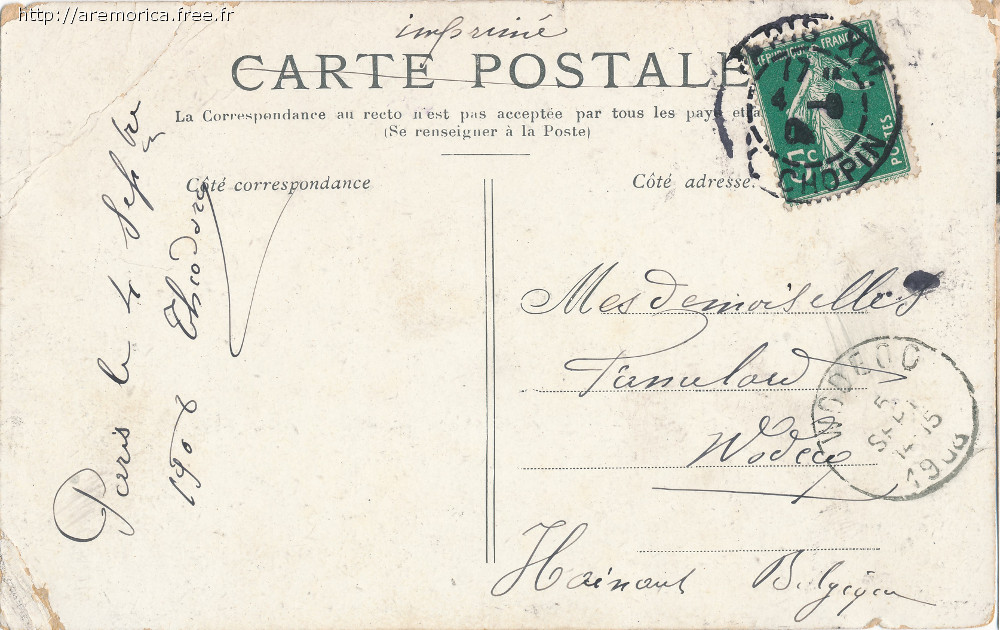 http://aremorica.free.fr
imprimé
CARTE POSTALE
La Correspondance au recto n'est pas acceptée par tous les pays
(Se renseigner à la Poste)
Côté correspondance
Côté adresse.
Paris le 4 Septbre
1908 Théodore
RÉPUBLIQUE FRANÇAISE
POSTES
5 c
PARIS XVI
17
4 9
CHOPIN
Mesdemoiselles
Wodecq
Hainaut Belgique
WODECQ
5
SEPT
15
1908